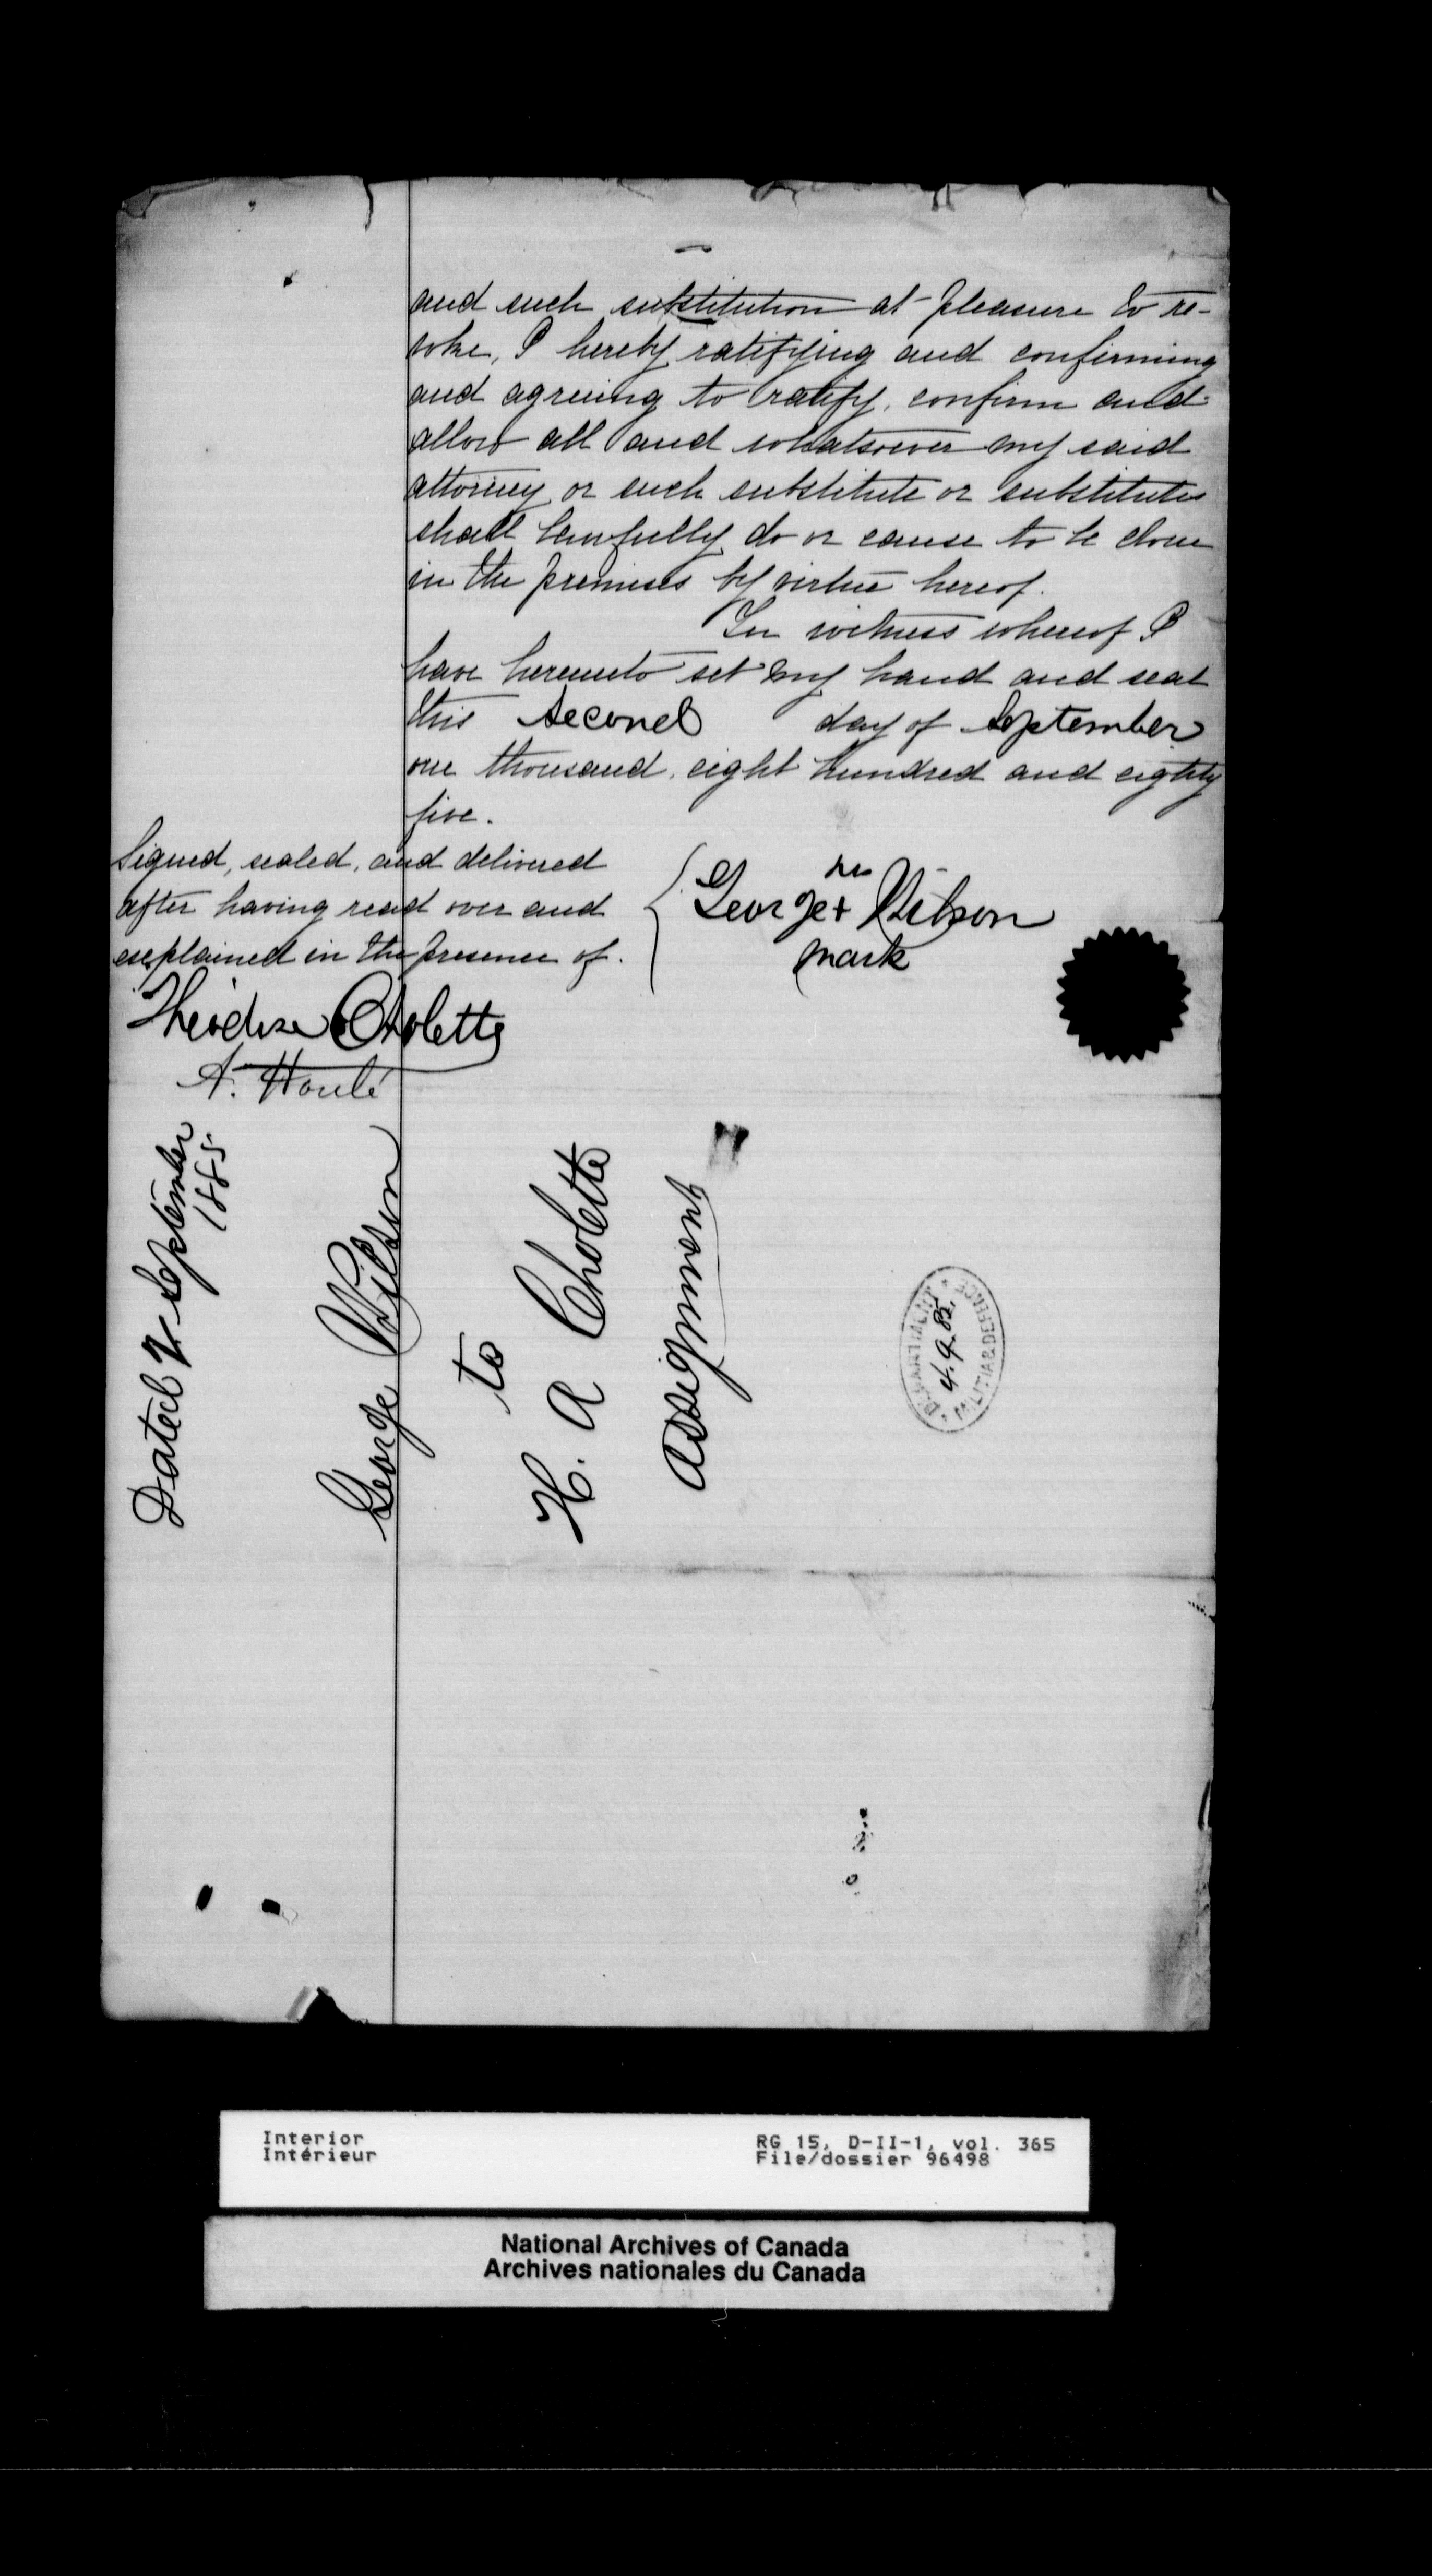 and such substitution at pleasure to re-
voke, I hereby ratifying and confirming
and agreeing to ratify, confirm and
allow all and whatsoever my said
attorney or such substitute or substitutes
shall lawfully do or cause to be done
in the premises by virtue hereof.
In witness whereof I
have hereunto set my hand and seal
this second day of September
one thousand, eight hundred and eighty
five.
Signed, sealed, and delivered
after having read over and
explained in the presence of.
his
George + Wilson
mark
Cholette
A. Houle
Dated 2 September
1885.
George Wilson
to
H. A Cholette
Assignment
DEPARTMENT
4.9.85.
MILITIA & DEFENCE
Interior
Intérieur
RG 15, D-II-1, vol. 365
File/dossier 96498
National Archives of Canada
Archives nationales du Canada